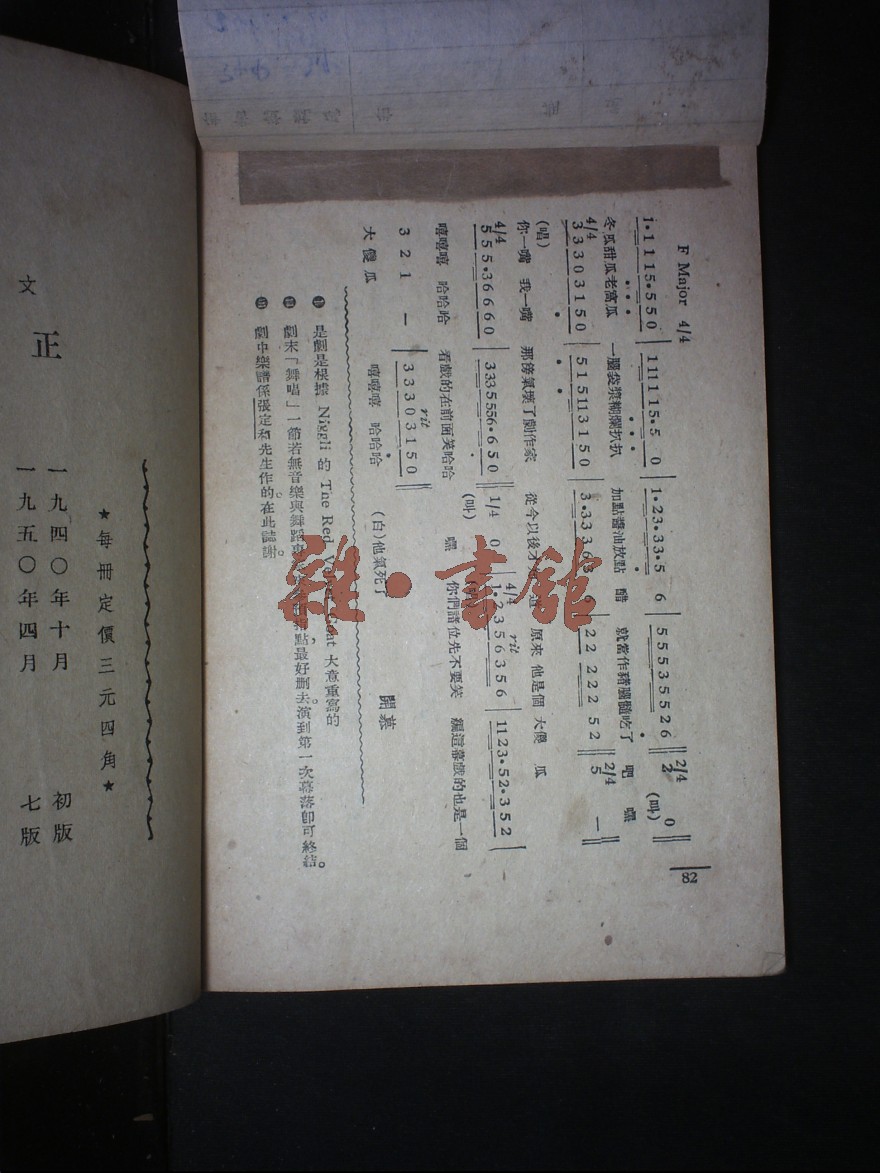 82
F Major 4/4
1·1 1 1 5·5 5 0 | 1 1 1 1 1 5·5 0 | 1·2 3·3 3·5 6 | 5 5 5 3 5 5 2 6 ‖ 2/4 2 0 ‖
冬瓜甜瓜老窩瓜 一腦袋漿糊爛扒扒 加點醬油放點 醋 就當作豬腦髓吃了 吧 嘿
(叫)
4/4 3 3 3 0 3 1 5 0 | 5 1 5 1 1 3 1 5 0 | 3·3 3 3 6 3 6 | 2 2 2 2 2 5 2 ‖ 2/4 5 — ‖
(唱)
你一嘴 我一嘴 那傍氣壞了劇作家 從今以後才 原來 他是個 大傻 瓜
4/4 5 5 5·3 6 6 6 0 | 3 3 3 5 5 5 6·6 5 0 ‖ 1/4 0 | 4/4 1·2 3 5 6 3 5 6 | 1 1 2 3·5 2·3 5 2 |
rit
嘻嘻嘻 哈哈哈 看戲的在前面笑哈哈 嘿 你們諸位先不要笑 編這幕戲的也是一個
(叫)
3 2 1 — | 3 3 3 0 3 1 5 0 ‖
rit
大傻瓜 嘻嘻嘻 哈哈哈 (白)他氣死了 開幕
是劇是根據 Niggli 的 The Red Velvet Coat 大意重寫的
劇末「舞唱」一節若無音樂與舞蹈 點最好刪去。演到第一次幕落卽可終結。
劇中樂譜係張定和先生作的。在此誌謝。
★每冊定價三元四角★
一九四〇年十月 初版
一九五〇年四月 七版
正
文
雜·書館